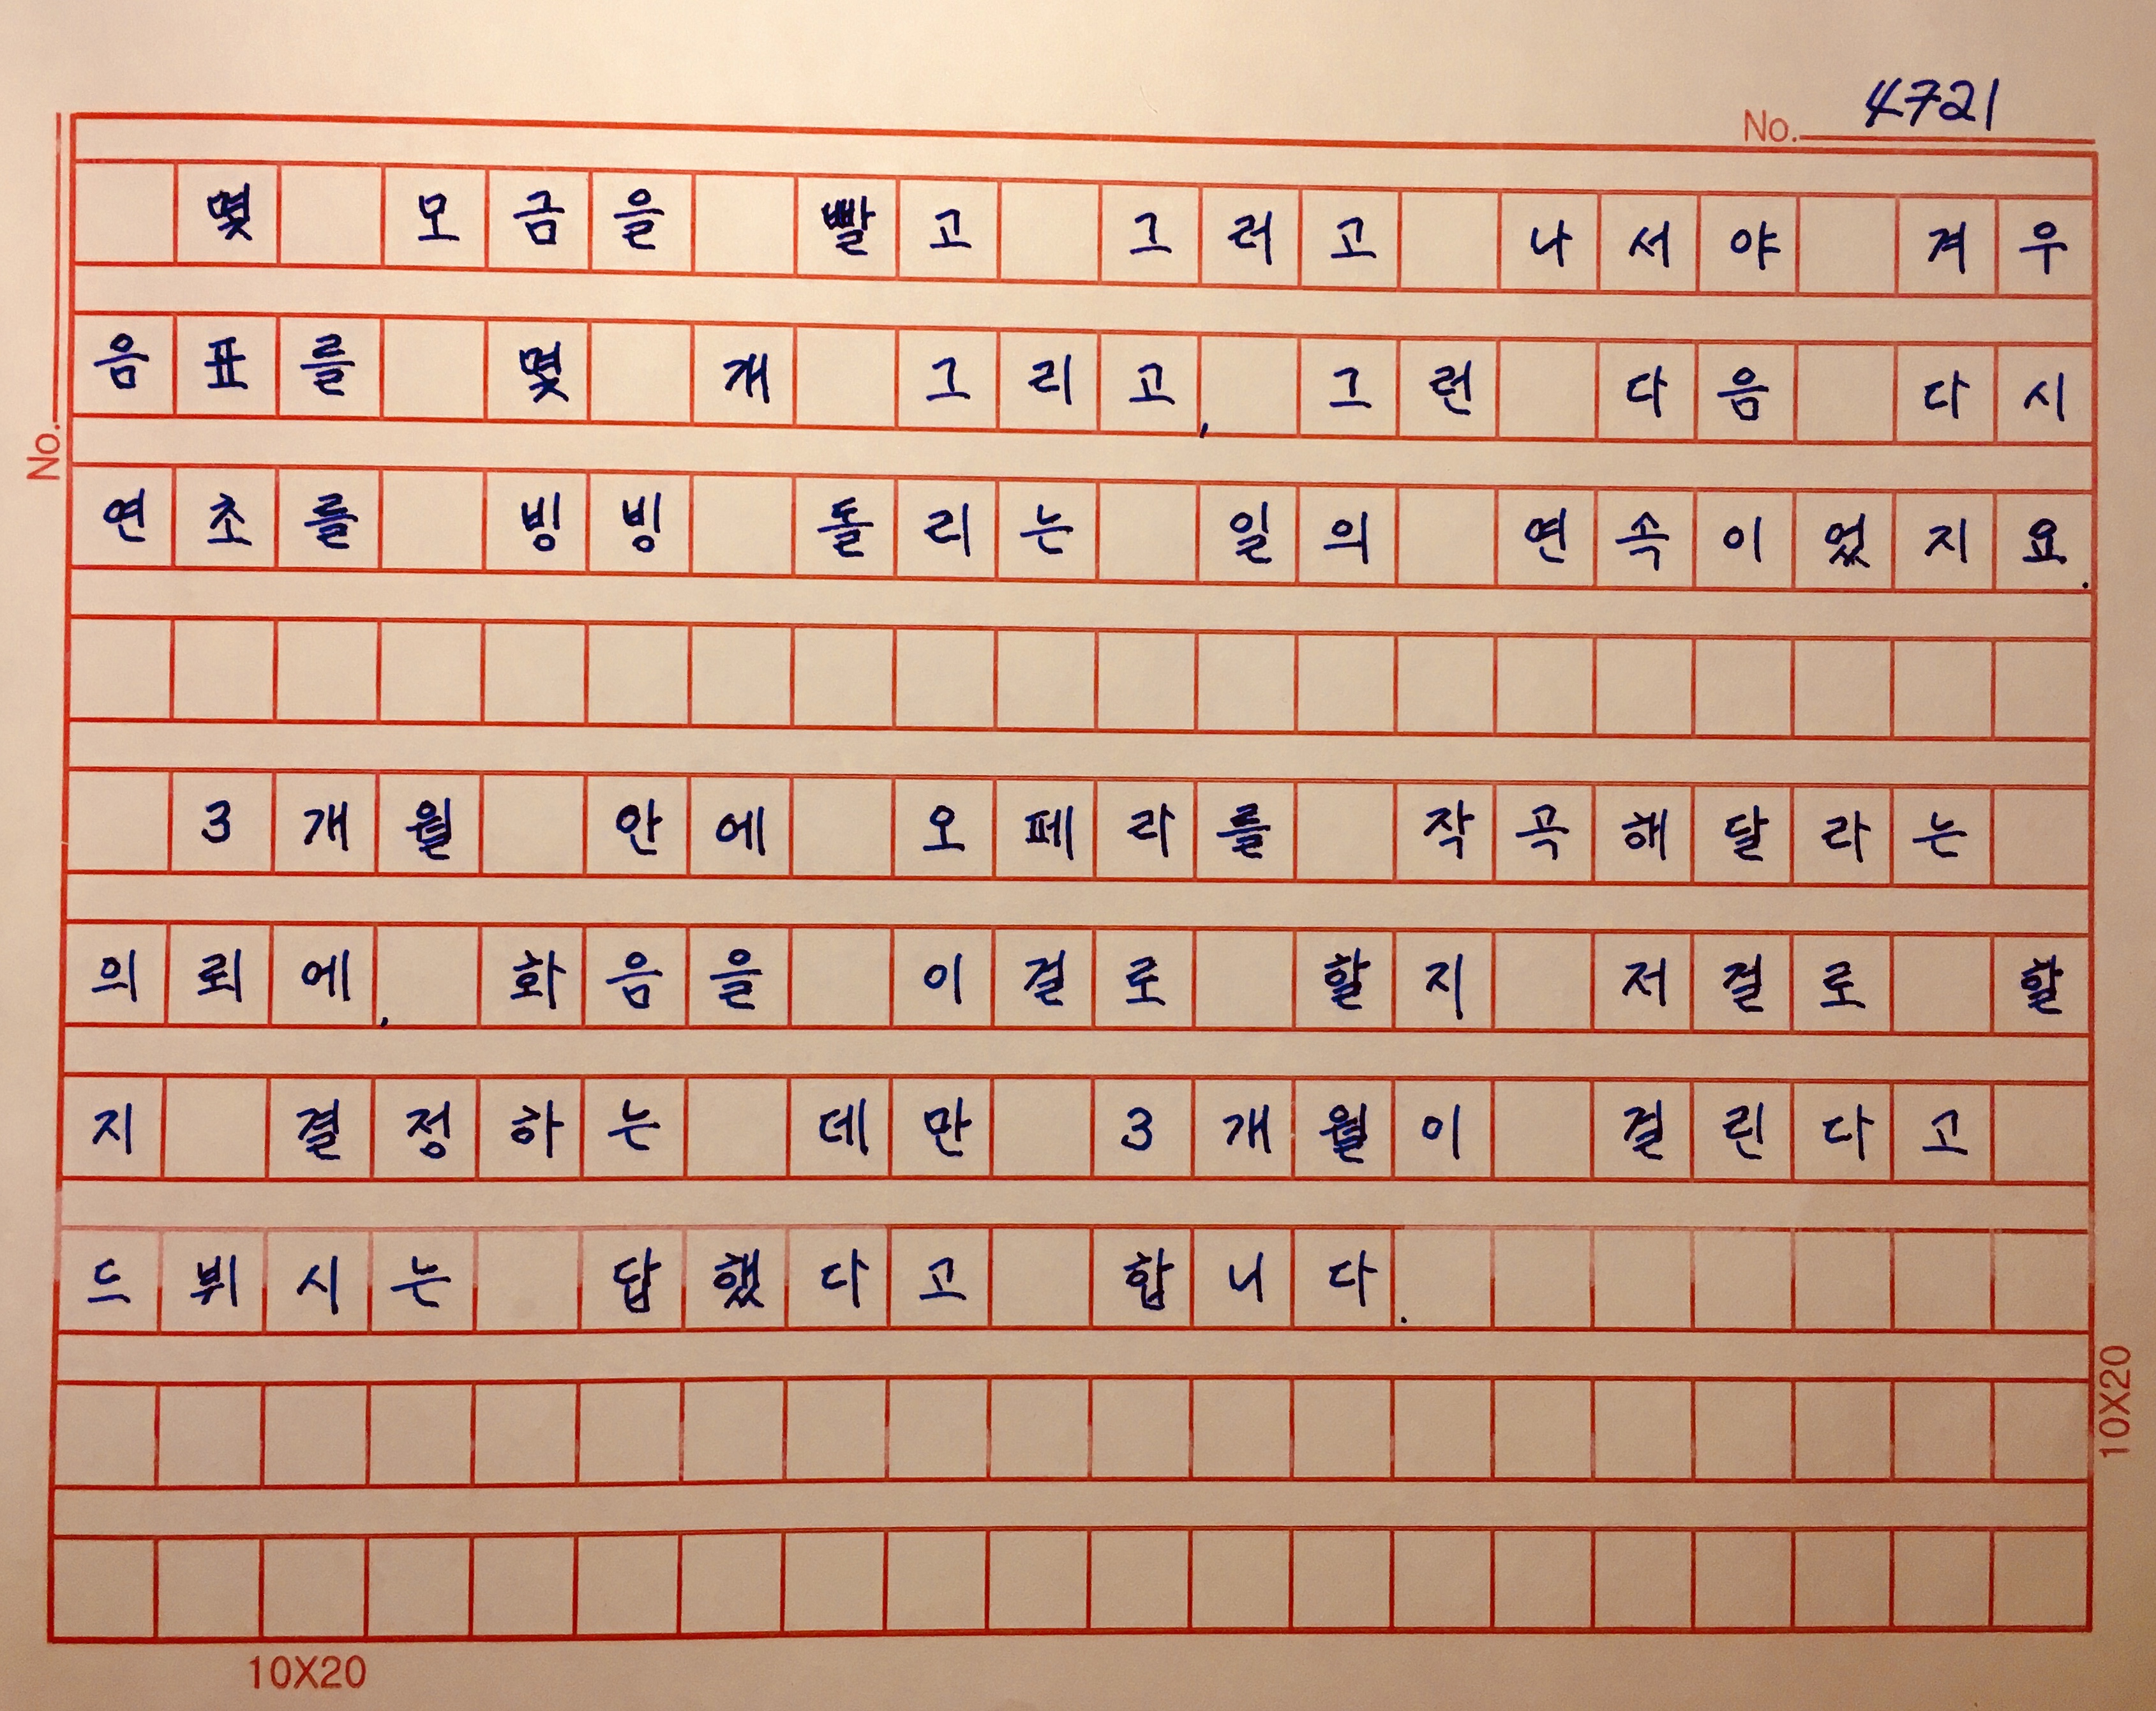 No. 4721
몇 모금을 빨고 그러고 나서야 겨우
음표를 몇 개 그리고, 그런 다음 다시
No.
연초를 빙빙 돌리는 일의 연속이었지요.
3개월 안에 오페라를 작곡해달라는
의뢰에, 화음을 이걸로 할지 저걸로 할
지 결정하는 데만 3개월이 걸린다고
드뷔시는 답했다고 합니다.
10X20
10X20